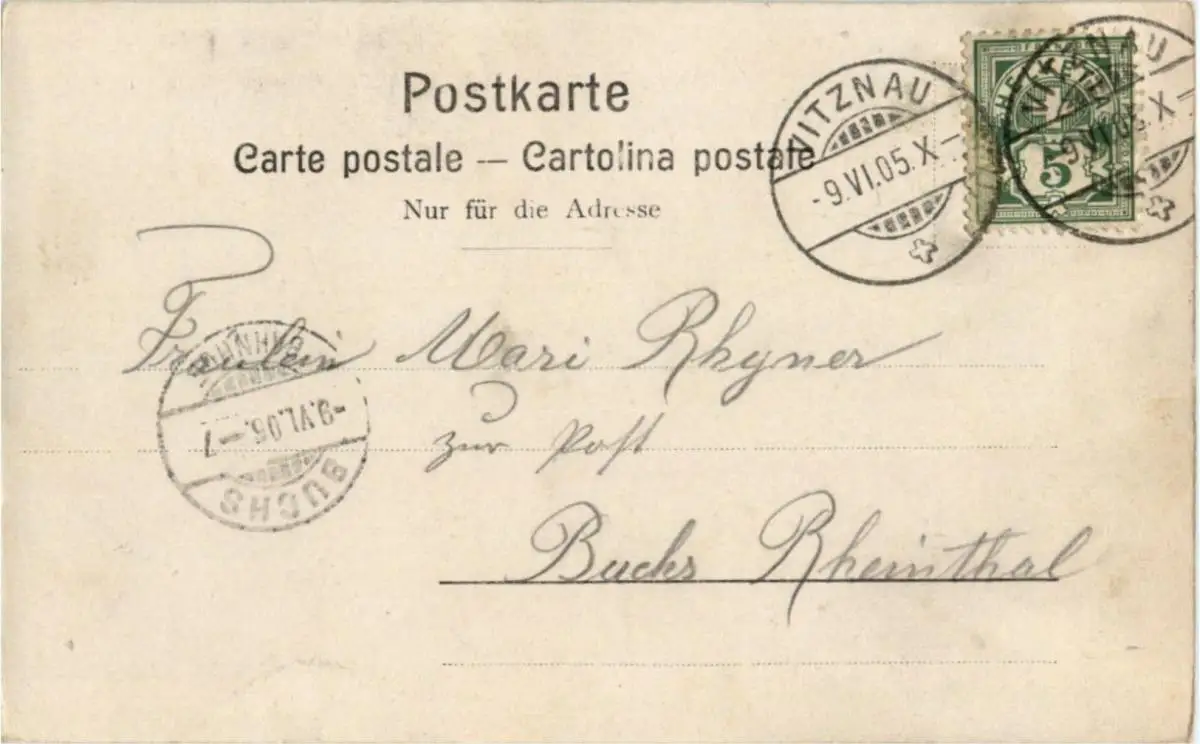 Postkarte
Carte postale — Cartolina postale
Nur für die Adresse
VITZNAU
-9.VI.05.X-
VITZNAU
-9.VI.05.X-
HELVETIA
5
Fraulein Mari Rhyner
zur Post
Buchs Rheinthal
BUCHS
-9.VI.05.-7
BAHNHOF